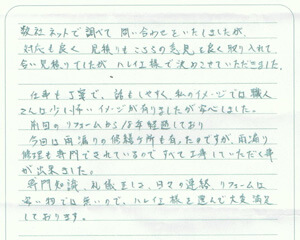 数社ネットで調べて問い合わせをいたしましたが、
対応も良く 見積りもこちらの意見を良く取り入れて
合い見積りでしたが ハレイエ様で決めさせていただきました。
仕事も丁寧で、話もしやすく、私のイメージでは職人
さんは少し怖いイメージが有りましたが安心しました。
前回のリフォームから18年経過しており
今回は雨漏りの修繕ヶ所も有ったのですが、雨漏り
修理も専門でされているので すべて工事していただく事
が出来ました。
専門知識、礼儀正しさ、日々の連絡、リフォームは
安い物では無いので、ハレイエ様を選んで大変満足
しております。